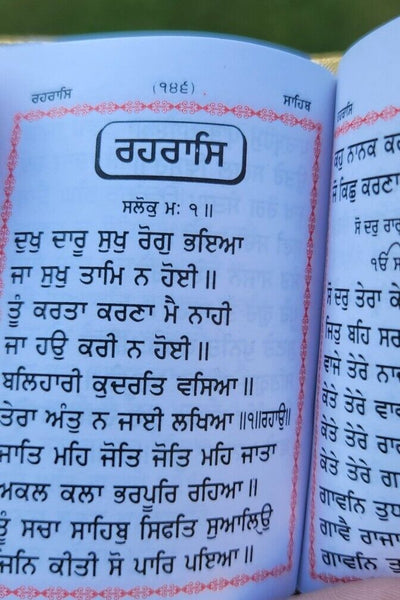 ਰਹਰਾਸਿ (੧੪੬) ਸਾਹਿਬ
ਰਹਰਾਸਿ
ਸਲੋਕੁ ਮਃ ੧॥
ਦੁਖੁ ਦਾਰੂ ਸੁਖੁ ਰੋਗੁ ਭਇਆ
ਜਾ ਸੁਖੁ ਤਾਮਿ ਨ ਹੋਈ॥
ਤੂੰ ਕਰਤਾ ਕਰਣਾ ਮੈ ਨਾਹੀ
ਜਾ ਹਉ ਕਰੀ ਨ ਹੋਈ॥
ਬਲਿਹਾਰੀ ਕੁਦਰਤਿ ਵਸਿਆ॥
ਤੇਰਾ ਅੰਤੁ ਨ ਜਾਈ ਲਖਿਆ॥੧॥ਰਹਾਉ॥
ਜਾਤਿ ਮਹਿ ਜੋਤਿ ਜੋਤਿ ਮਹਿ ਜਾਤਾ
ਅਕਲ ਕਲਾ ਭਰਪੂਰਿ ਰਹਿਆ॥
ਤੂੰ ਸਚਾ ਸਾਹਿਬੁ ਸਿਫਤਿ ਸੁਆਲਿਉ
ਜਿਨਿ ਕੀਤੀ ਸੋ ਪਾਰਿ ਪਇਆ॥
ਨਾਨਕ
ਸੋ ਕਿਛੁ ਕਰਣਾ
ਸੋ ਦਰੁ
ੴ
ਸੋ ਦਰੁ ਤੇਰਾ
ਜਿਤੁ ਬਹਿ
ਵਾਜੇ ਤੇਰੇ
ਕੇਤੇ ਤੇਰੇ
ਕੇਤੇ ਤੇਰੇ
ਕੇਤੇ ਤੇਰੇ
ਗਾਵਨਿ
ਗਾਵੈ ਰਾਜਾ
ਗਾਵਨਿ